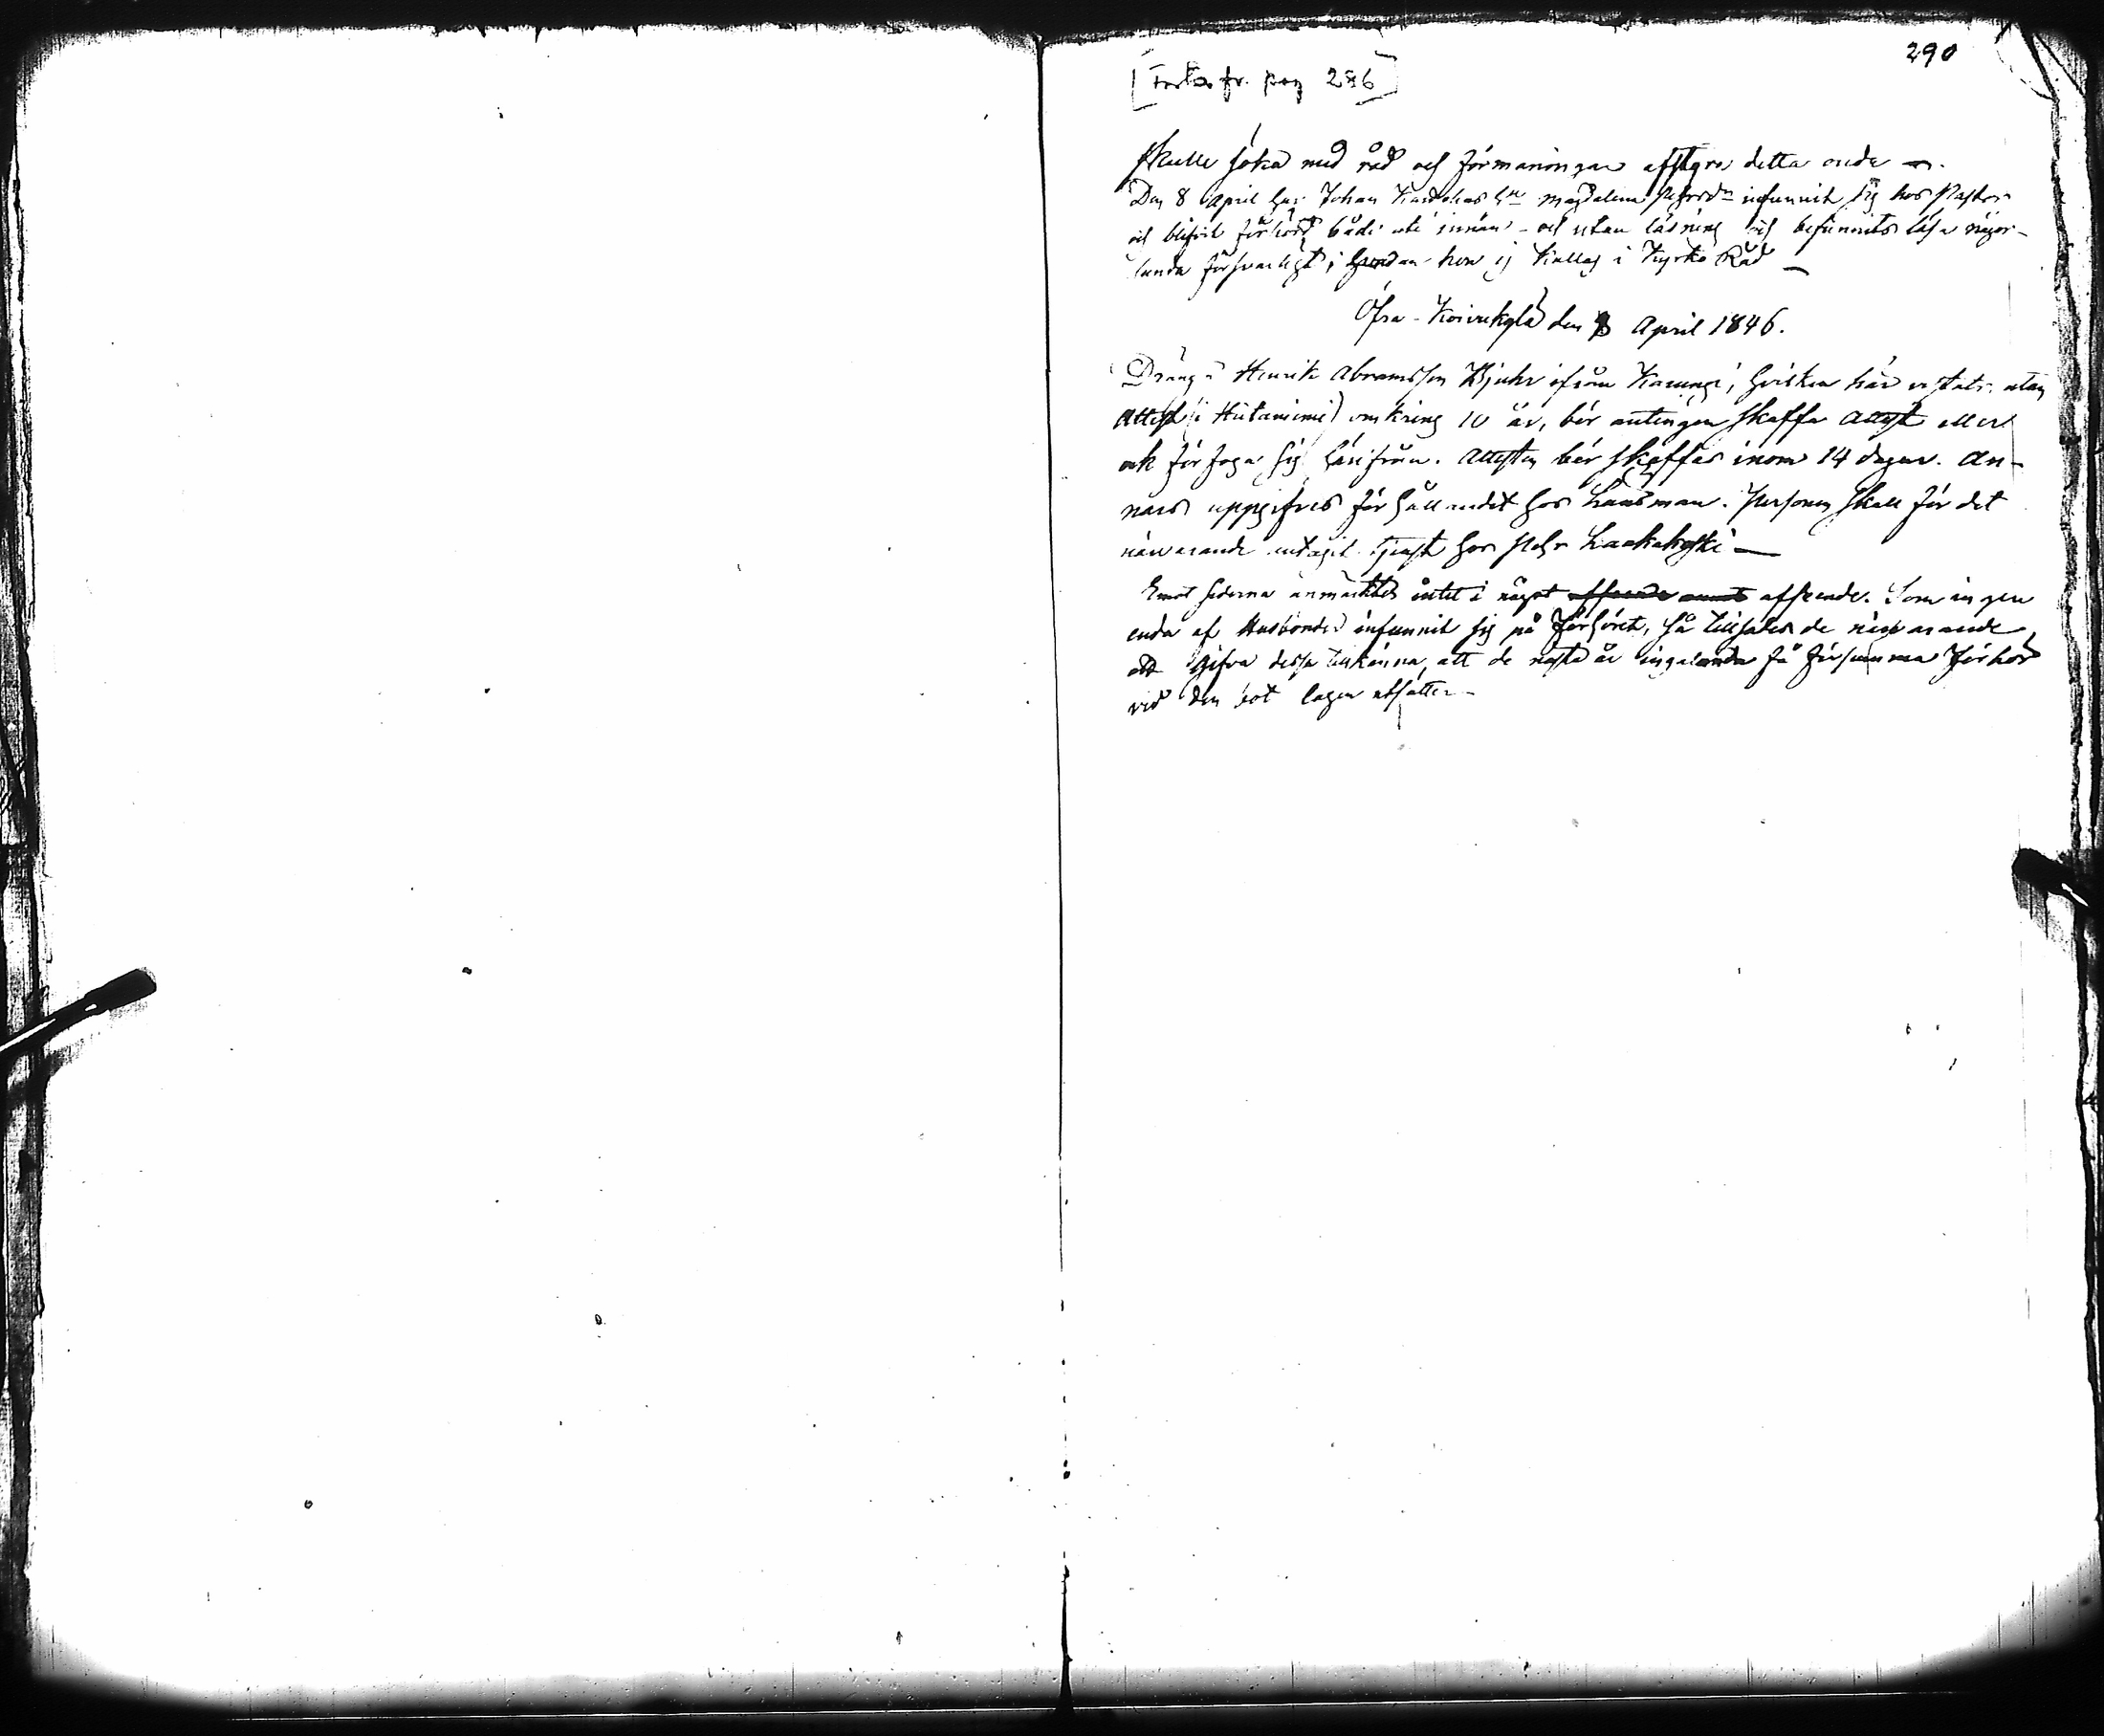 290
[Forts. fr. pag 286]
skulle söka med råd och förmaningar afstyra detta onda —.
Den 8 April har Johan hu Magdalena Pehrsdr infunnit sig hos Pastor
och blifvit förhörd både uti innan- och utan läsning och befunnits läsa någor-
lunda försvarligt; hvardan hon ej kallas i Kyrko Råd —
Öfra-Koivukylä den 8 April 1846.
Drängen Henrik Abramsson Kjuhr ifrån Karungi, hvilken här vistats utan
Attest (i Hietaniemi) omkring 10 år, bör antingen skaffa Attest eller
ock förfoga sig härifrån. Attesten bör skaffas inom 14 dagar. An-
nars uppgifves förhållandet hos Länsman. Personen skall för det
närvarande antagit tjenst hos Pehr Laakakoski —
Emot sederna anmärktes intet i något afseende. Som ingen
enda af Husbonder infunnit sig på Förhöret, så tillsades de närvarande
att gifva dessa tillkänna, att de nästa år ingalunda få försumma Förhör
vid den bot lagen utsätter —